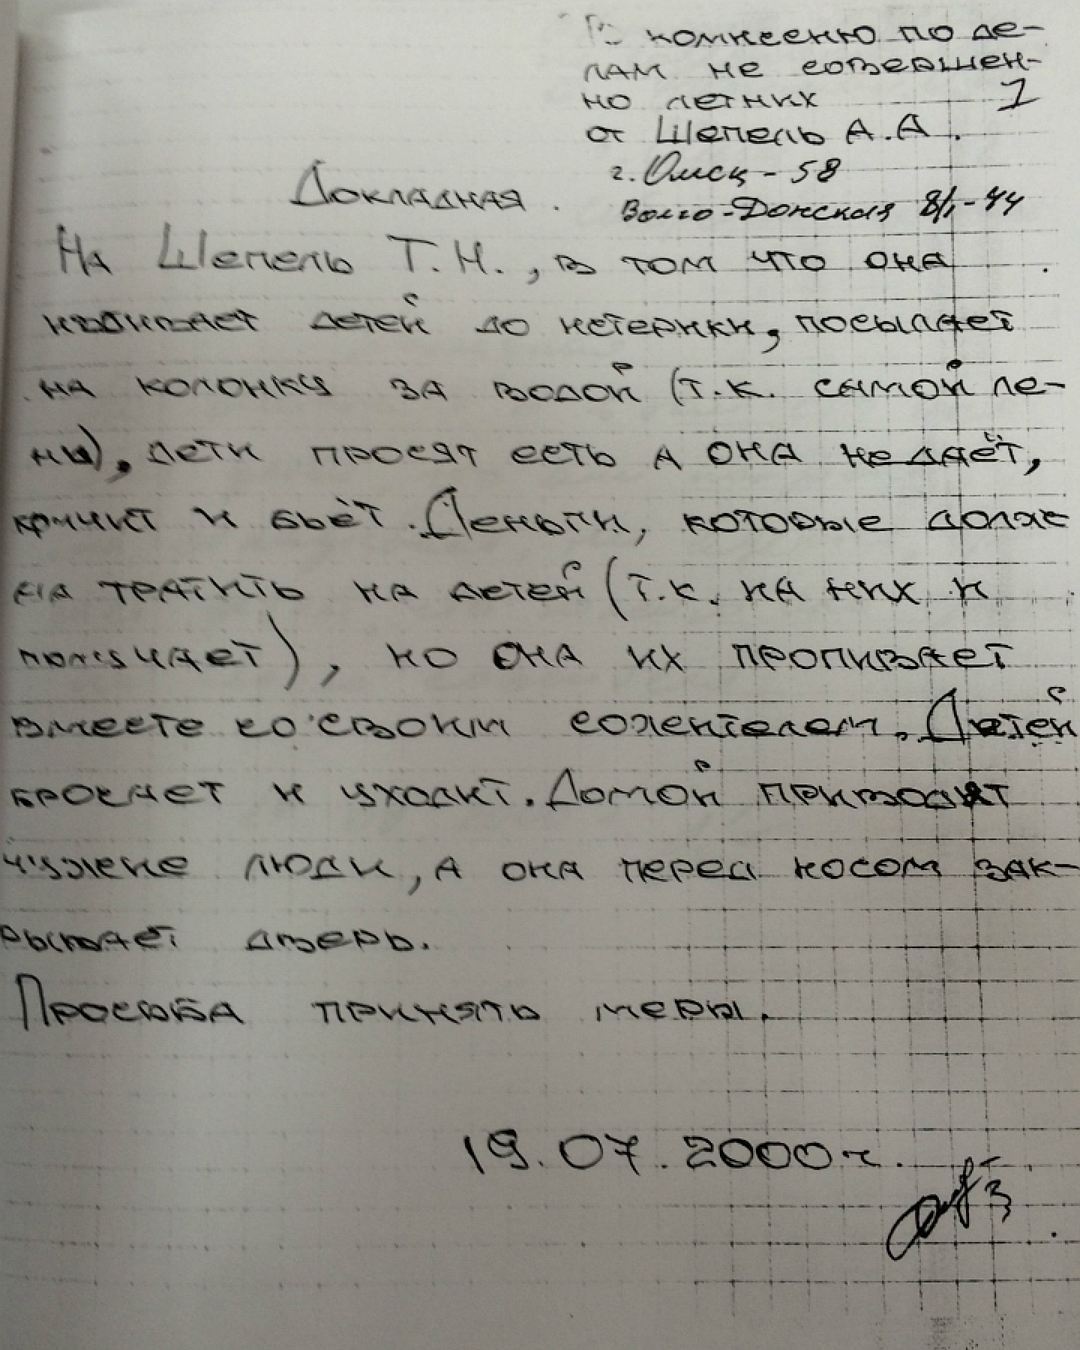 В комиссию по де-
лам не совершен-
но летних 1
от Шепель А.А.
г. Омск - 58
Докладная.
Волго-Донская 8/1-44
На Шепель Т.Н., в том что она
избивает детей до истерики, посылает
на колонку за водой (т.к. самой ле-
нь), дети просят есть а она не даёт,
кричит и бьёт. Деньги, которые долж
на тратить на детей (т.к. на них и
получает), но она их пропивает
вместе со своим сожителем. Детей
бросает и уходит. Домой приводят
чужие люди, а она перед носом зак-
рывает дверь.
Просьба принять меры.
19.07.2000г.